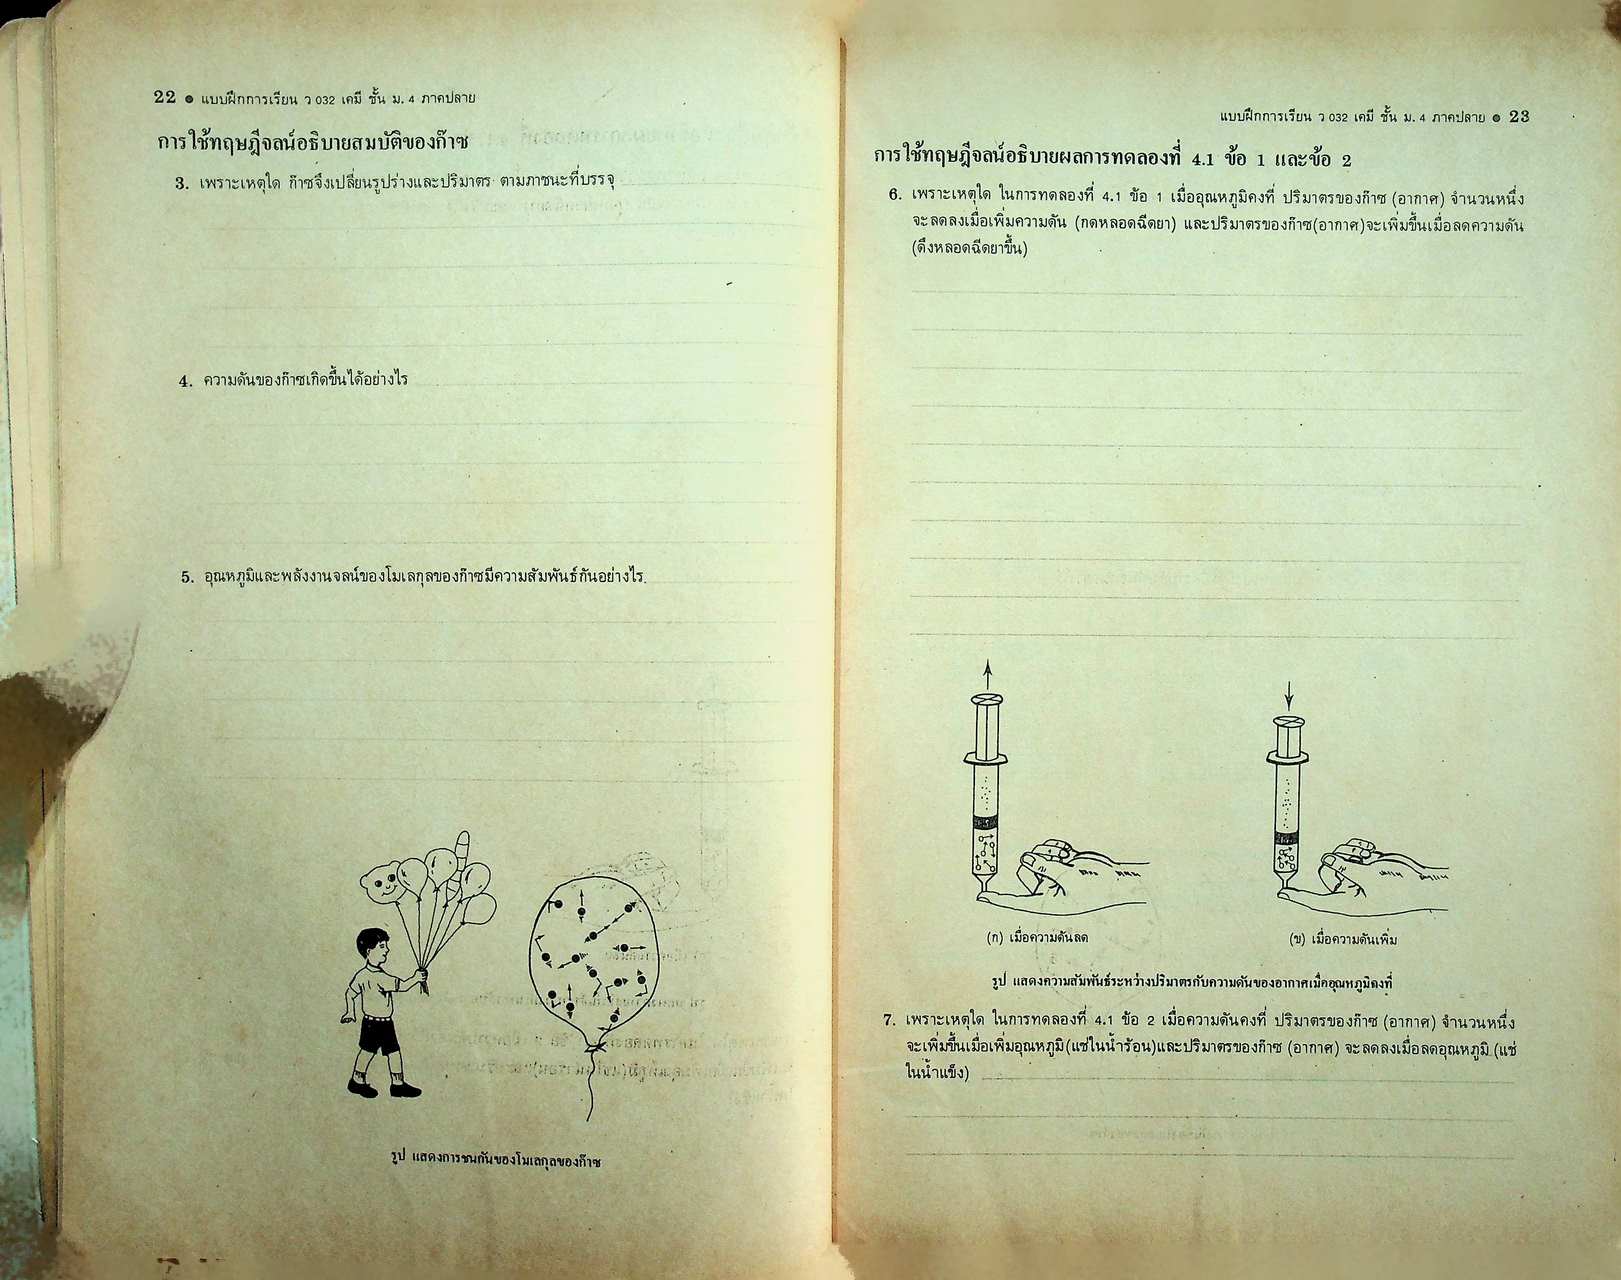 22 ● แบบฝึกการเรียน ว 032 เคมี ชั้น ม. 4 ภาคปลาย
การใช้ทฤษฎีจลน์อธิบายสมบัติของก๊าซ
3. เพราะเหตุใด ก๊าซจึงเปลี่ยนรูปร่างและปริมาตร ตามภาชนะที่บรรจุ
4. ความดันของก๊าซเกิดขึ้นได้อย่างไร
5. อุณหภูมิและพลังงานจลน์ของโมเลกุลของก๊าซมีความสัมพันธ์กันอย่างไร
รูป แสดงการชนกันของโมเลกุลของก๊าซ
แบบฝึกการเรียน ว 032 เคมี ชั้น ม. 4 ภาคปลาย ● 23
การใช้ทฤษฎีจลน์อธิบายผลการทดลองที่ 4.1 ข้อ 1 และข้อ 2
6. เพราะเหตุใด ในการทดลองที่ 4.1 ข้อ 1 เมื่ออุณหภูมิคงที่ ปริมาตรของก๊าซ (อากาศ) จำนวนหนึ่ง
จะลดลงเมื่อเพิ่มความดัน (กดหลอดฉีดยา) และปริมาตรของก๊าซ(อากาศ)จะเพิ่มขึ้นเมื่อลดความดัน
(ดึงหลอดฉีดยาขึ้น)
(ก) เมื่อความดันลด
(ข) เมื่อความดันเพิ่ม
รูป แสดงความสัมพันธ์ระหว่างปริมาตรกับความดันของอากาศเมื่ออุณหภูมิคงที่
7. เพราะเหตุใด ในการทดลองที่ 4.1 ข้อ 2 เมื่อความดันคงที่ ปริมาตรของก๊าซ (อากาศ) จำนวนหนึ่ง
จะเพิ่มขึ้นเมื่อเพิ่มอุณหภูมิ (แช่ในน้ำร้อน)และปริมาตรของก๊าซ (อากาศ) จะลดลงเมื่อลดอุณหภูมิ (แช่
ในน้ำแข็ง)